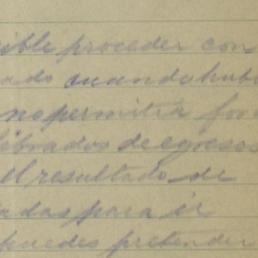 ible proceder con
ado cuando hub
no permitir for
librados de egresos
el resultado de
adas para ir
puedes pretender